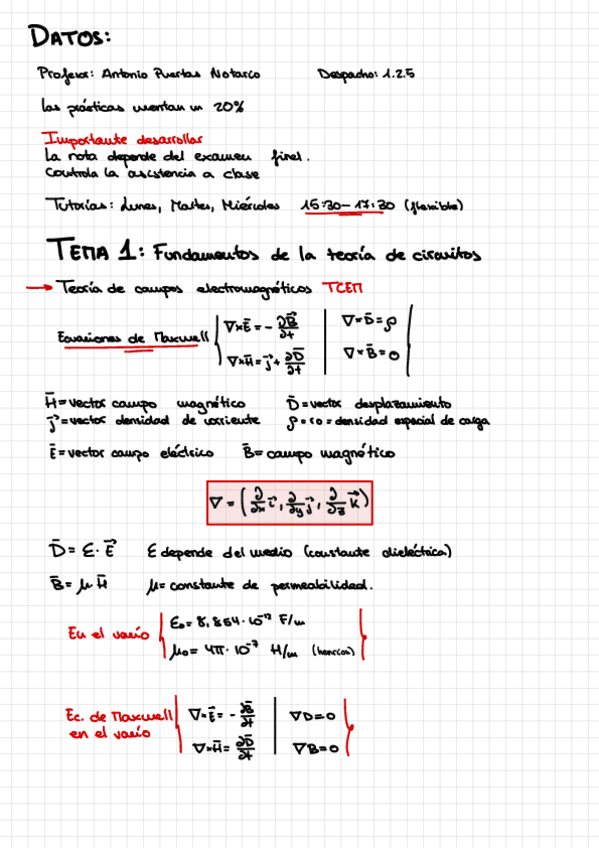 DATOS:
Profesor: Antonio Puertas Notario Despacho: 1.2.5
Las prácticas cuentan un 20%
Importante desarrollar
La nota depende del examen final.
Controla la asistencia a clase
Tutorías: Lunes, Martes, Miércoles 15:30 – 17:30 (flexible)
TEMA 1: Fundamentos de la teoría de circuitos
→ Teoría de campos electromagnéticos TCEM
Ecuaciones de Maxwell
∇×E⃗ = - ∂B⃗/∂t ∇×D̄ = ρ
∇×H̄ = j⃗ + ∂D̄/∂t ∇×B̄ = 0
H̄ = vector campo magnético D̄ = vector desplazamiento
j⃗ = vector densidad de corriente ρ = ro = densidad espacial de carga
Ē = vector campo eléctrico B̄ = campo magnético
∇ = (∂/∂x i⃗, ∂/∂y j⃗, ∂/∂z k⃗)
D̄ = ε · E⃗ ε depende del medio (constante dieléctrica)
B̄ = μ · H̄ μ = constante de permeabilidad.
En el vacío
ε₀ = 8,854 · 10⁻¹² F/m
μ₀ = 4π · 10⁻⁷ H/m (henrios)
Ec. de Maxwell
en el vacío
∇×E⃗ = - ∂B̄/∂t ∇D = 0
∇×H̄ = ∂D̄/∂t ∇B = 0